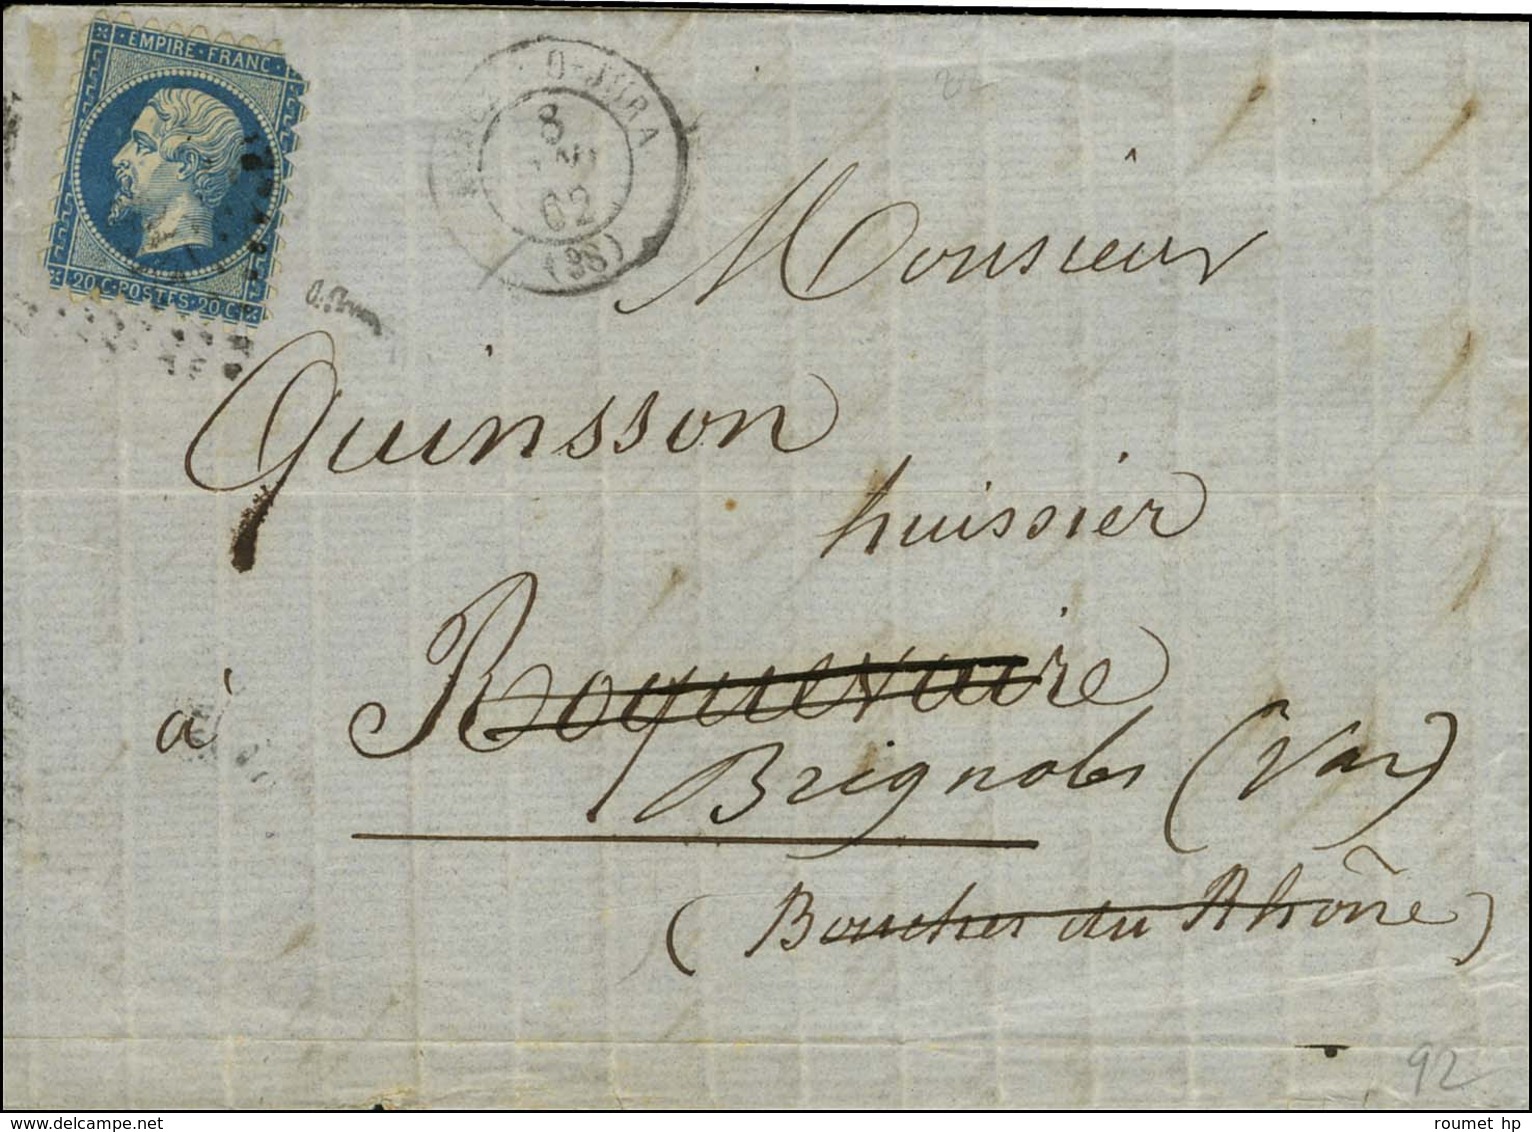 EMPIRE · FRANC
20 C · POSTES · 20 C
D-JURA
8
62
(38)
Monsieur
Quinsson
huissier
à Roquevaire
Brignoles (Var)
(Bouches du Rhône)
92
roumet hp